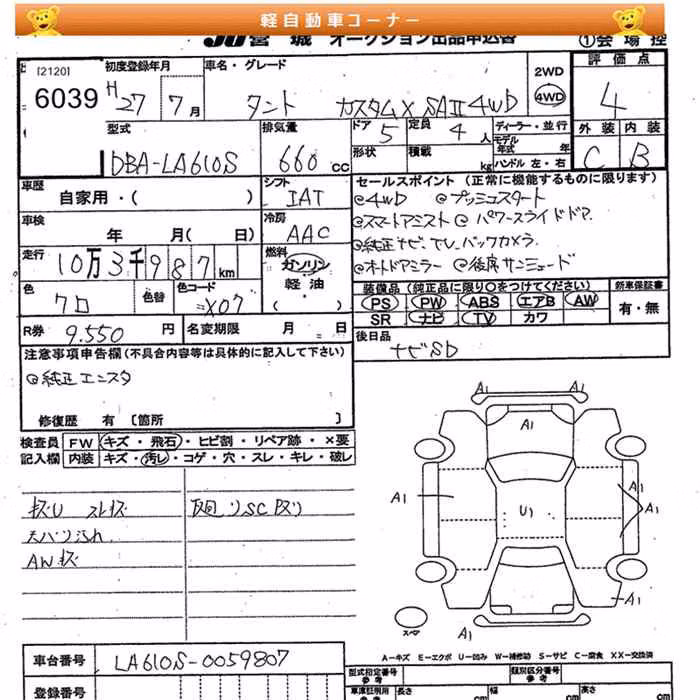 軽自動車コーナー
JU宮城 オークション出品申込書 ①会場控
[2120]
6039
初度登録年月
H27 7月
車名・グレード
タント カスタムX SAⅡ 4WD
2WD
4WD
評価点
4
外装 内装
C B
型式
DBA-LA610S
排気量
660 cc
ドア
5
定員
4 人
形状
積載
kg
ディーラー・並行
モデル年式 年
ハンドル 左・右
車歴
自家用・( )
シフト
IAT
セールスポイント (正常に機能するものに限ります)
@4WD @プッシュスタート
@スマートアシスト @パワースライドドア
@純正ナビ、TV、バックカメラ
@オートドアミラー @後席サンシェード
車検
年 月( 日)
冷房
AAC
走行
10万3千987km
燃料
ガソリン
軽油
( )
色
クロ
色替
色コード
X07
装備品 (純正品に限り○をつけてください)
PS PW ABS エアB AW
SR ナビ TV カワ
新車保証書
有・無
R券 9.550 円
名変期限 月 日
後日品
ナビSD
注意事項申告欄(不具合内容等は具体的に記入して下さい)
@純正エンスタ
修復歴 有 〔箇所 〕
検査員
記入欄
FW キズ・飛石・ヒビ割・リペア跡・×要
内装 キズ・汚レ・コゲ・穴・スレ・キレ・破レ
キズU スレキズ
天バリ汚れ
AWキズ
A1
A1
A1
A1
U1
A1
A1
A1
A1
スペア
A-キズ E-エクボ U-凹み W-補修跡 S-サビ C-腐食 XX-交換済
車台番号
LA610S-0059807
登録番号
型式指定番号
参考
類別区分番号
参考
車庫証明用
参考
長さ cm
幅 cm
高さ cm